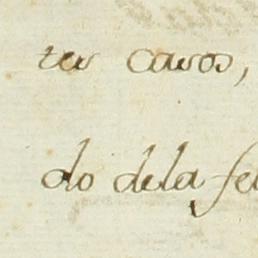 tes casos,
do dela fe